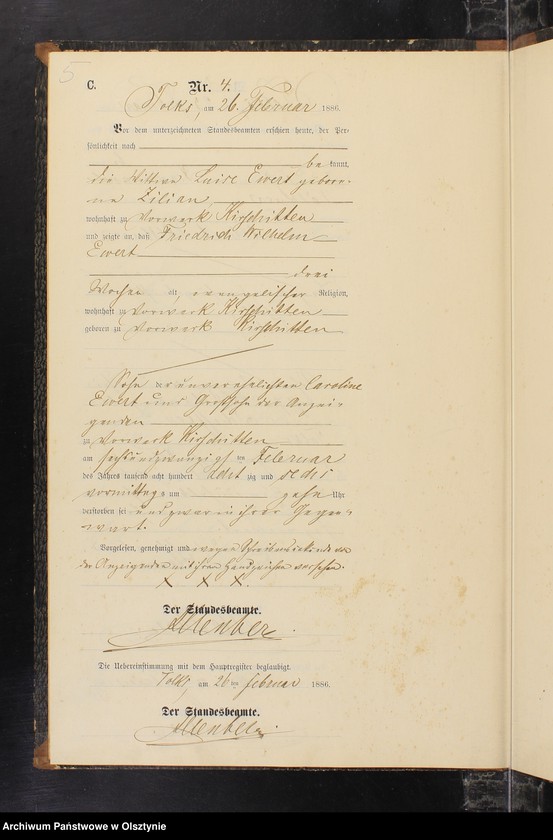 5
C. Nr. 4.
Tolks, am 26. Februar 1886.
Vor dem unterzeichneten Standesbeamten erschien heute, der Per-
sönlichkeit nach
be kannt,
die Wittwe Luise Ewert gebore-
ne Zilian
wohnhaft zu Vorwerk Kirschitten
und zeigte an, daß Friedrich Wilhelm
Ewert
drei
Wochen alt, evangelischer Religion,
wohnhaft zu Vorwerk Kirschitten
geboren zu Vorwerk Kirschitten
Sohn der unverehelichten Caroline
Ewert und Großsohn der Anzei-
genden
zu Vorwerk Kirschitten
am sechsundzwanzigsten Februar
des Jahres tausend acht hundert acht zig und sechs
vormittags um zehn Uhr
verstorben sei und zwar in ihrer Gegen-
wart.
Vorgelesen, genehmigt und wegen Schreibensunkunde von
der Anzeigenden mit ihrem Handzeichen versehen.
X X X.
Der Standesbeamte.
Die Uebereinstimmung mit dem Hauptregister beglaubigt.
Tolks, am 26ten Februar 1886.
Der Standesbeamte.
Archiwum Państwowe w Olsztynie